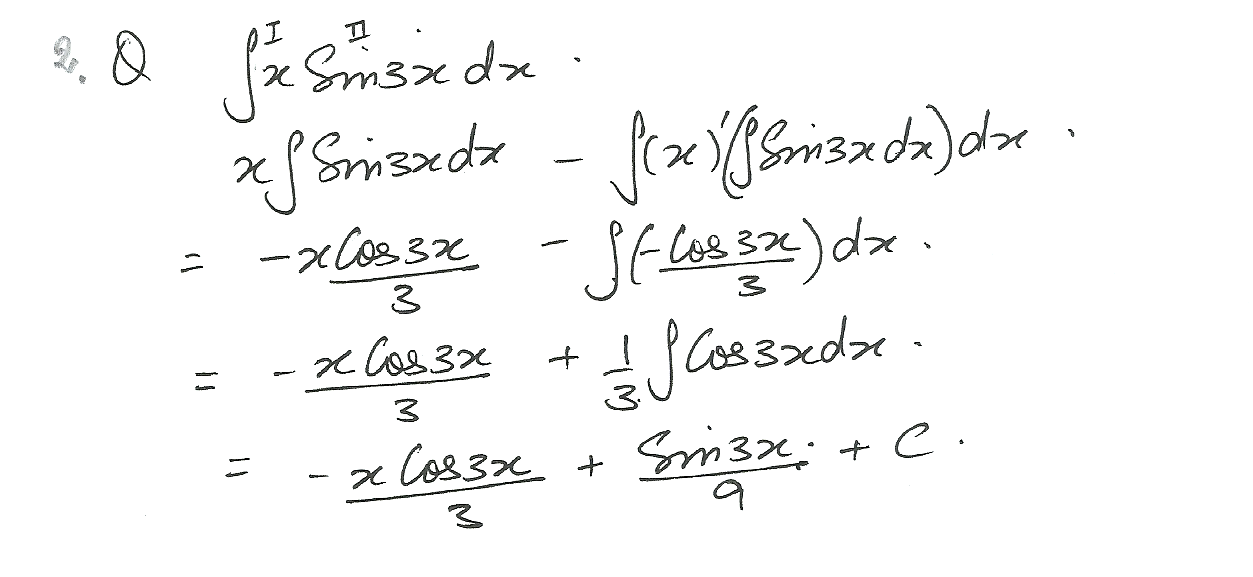 2. Q ∫ x^I Sin^II 3x dx .
x ∫ Sin3x dx - ∫ (x)' (∫ Sin3x dx) dx .
= -x Cos 3x / 3 - ∫ (- Cos 3x / 3) dx .
= - x Cos 3x / 3 + 1/3 ∫ Cos 3x dx .
= - x Cos 3x / 3 + Sin 3x / 9 + C .